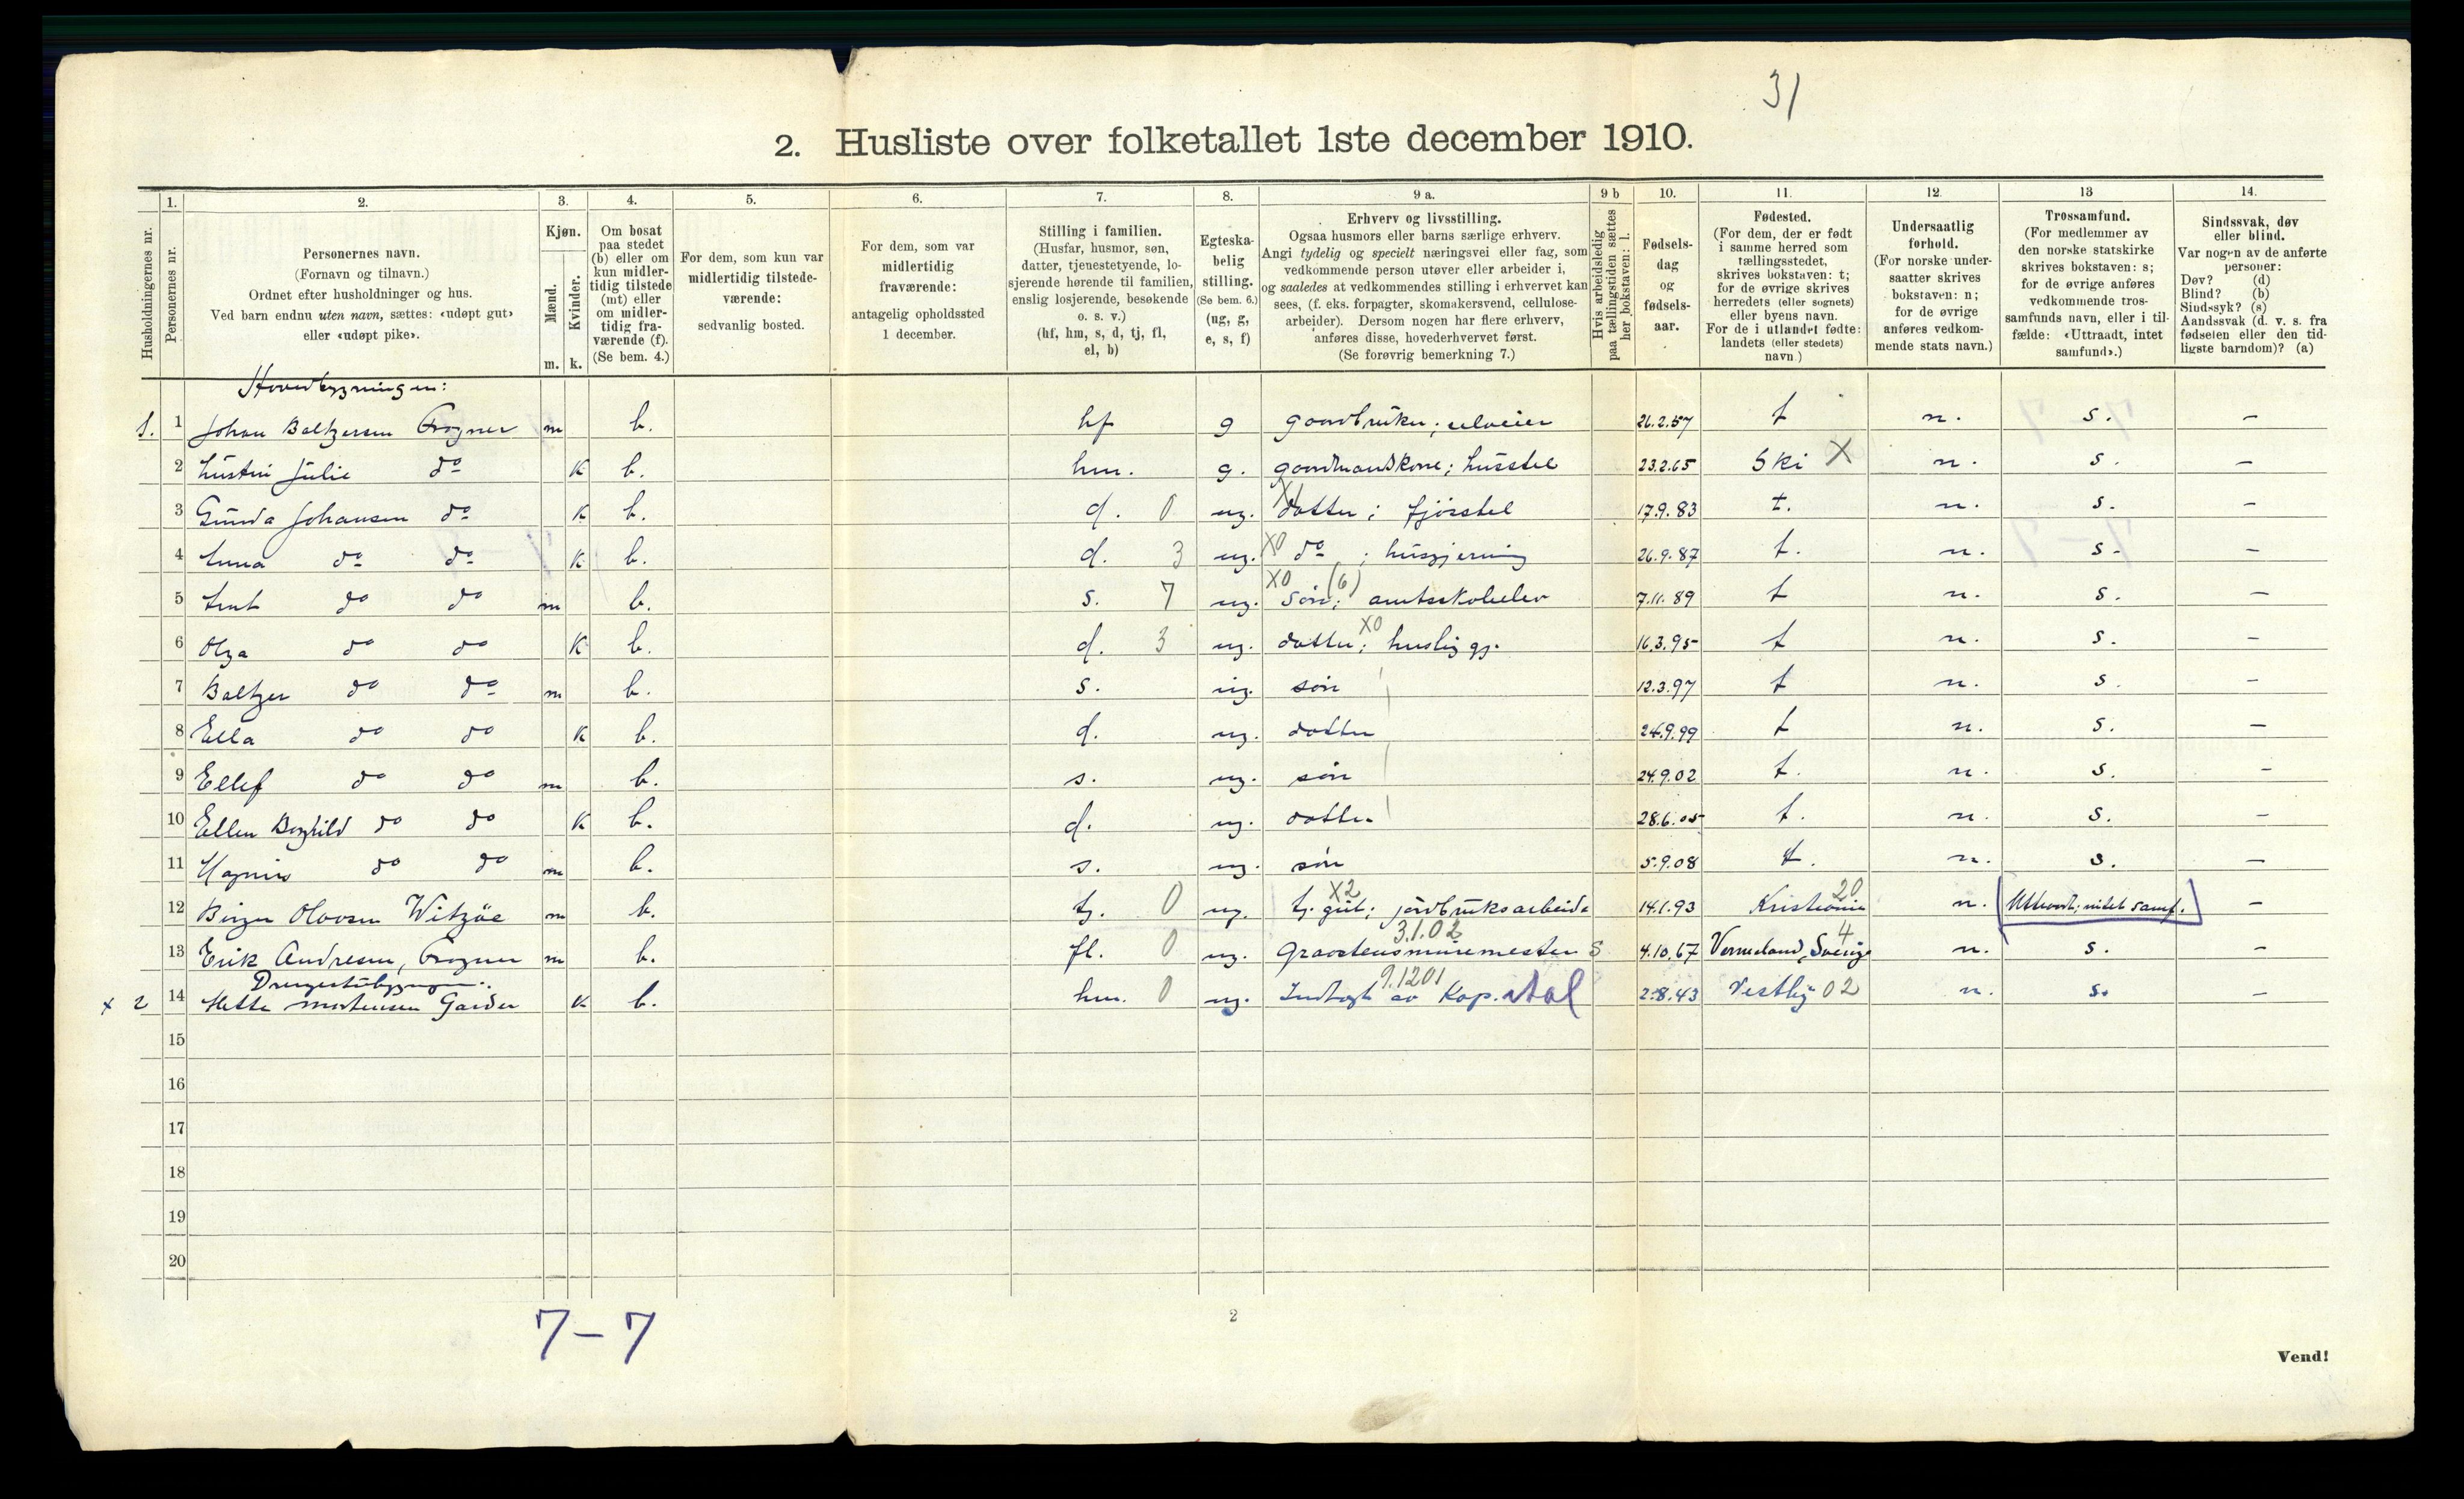 31
2. Husliste over folketallet 1ste december 1910.
Husholdningernes nr.
1. Personernes nr.
2. Personernes navn.
(Fornavn og tilnavn.)
Ordnet efter husholdninger og hus.
Ved barn endnu uten navn, sættes: «udøpt gut»
eller «udøpt pike».
3. Kjøn.
Mænd. Kvinder.
m. k.
4. Om bosat
paa stedet
(b) eller om
kun midler-
tidig tilstede
(mt) eller
om midler-
tidig fra-
værende (f).
(Se bem. 4.)
5. For dem, som kun var
midlertidig tilstede-
værende:
sedvanlig bosted.
6. For dem, som var
midlertidig
fraværende:
antagelig opholdssted
1 december.
7. Stilling i familien.
(Husfar, husmor, søn,
datter, tjenestetyende, lo-
sjerende hørende til familien,
enslig losjerende, besøkende
o. s. v.)
(hf, hm, s, d, tj, fl,
el, b)
8. Egteska-
belig
stilling.
(Se bem. 6.)
(ug, g,
e, s, f)
9 a. Erhverv og livsstilling.
Ogsaa husmors eller barns særlige erhverv.
Angi tydelig og specielt næringsvei eller fag, som
vedkommende person utøver eller arbeider i,
og saaledes at vedkommendes stilling i erhvervet kan
sees, (f. eks. forpagter, skomakersvend, cellulose-
arbeider). Dersom nogen har flere erhverv,
anføres disse, hovederhvervet først.
(Se forøvrig bemerkning 7.)
9 b Hvis arbeidsledig
paa tællingstiden sættes
her bokstaven: l.
10. Fødsels-
dag
og
fødsels-
aar.
11. Fødested.
(For dem, der er født
i samme herred som
tællingsstedet,
skrives bokstaven: t;
for de øvrige skrives
herredets (eller sognets)
eller byens navn.
For de i utlandet fødte:
landets (eller stedets)
navn.)
12. Undersaatlig
forhold.
(For norske under-
saatter skrives
bokstaven: n;
for de øvrige
anføres vedkom-
mende stats navn.)
13 Trossamfund.
(For medlemmer av
den norske statskirke
skrives bokstaven: s;
for de øvrige anføres
vedkommende tros-
samfunds navn, eller i til-
fælde: «Uttraadt, intet
samfund».)
14. Sindssvak, døv
eller blind.
Var nogen av de anførte
personer:
Døv? (d)
Blind? (b)
Sindssyk? (s)
Aandssvak (d. v. s. fra
fødselen eller den tid-
ligste barndom)? (a)
Hovedbygningen:
1. 1 Johan Baltzersen Frogner m b. hf g gaardbruker; selveier 26.2.57 t n. s. –
2 Julie do k b. hm. g. gaardmandskone; husstel 23.2.65 Ski X n. s. –
3 Gunda Johansen do k b. d. 0 ug. datter; fjøsstel 17.9.83 t. n. s. –
4 Anna do do k b. d. 3 ug. X0 do ; husgjerning 26.9.87 t. n. s. –
5 do do m b. s. 7 ug. X0 søn; (6) amtsskoleelev 7.11.89 t n. s. –
6 Olga do do k b. d. 3 ug. datter; X0 huslig gj. 16.3.95 t n. s. –
7 Baltzer do do m b. s. ug. søn 12.3.97 t n. s. –
8 Ella do do k b. d. ug. datter 24.9.99 t n. s. –
9 Ellef do do m b. s. ug. søn 24.9.02 t. n. s. –
10 Ellen Borghild do do k b. d. ug. datter 28.6.05 t. n. s. –
11 Magnus do do m b. s. ug. søn 5.9.08 t. n. s. –
12 Birger Olavsen Witzøe m b. tj. 0 ug. tj. gut; X2 jordbruksarbeide 14.1.93 Kristiania 20 n. Uttraadt; intet samf. –
13 Erik Andresen, Frogner m b. fl. 0 ug. 3.1.02 graastensminemester S 4.10.67 Vermeland, Sverige 4 n. s. –
Drengestubygningen:
x 2 14 Mette Mortensen Garder k b. hm. 0 ug. 9.1201 Indtægt av Kapital 2.8.43 Vestby 02 n. s. –
15
16
17
18
19
20
7 – 7
2
Vend!